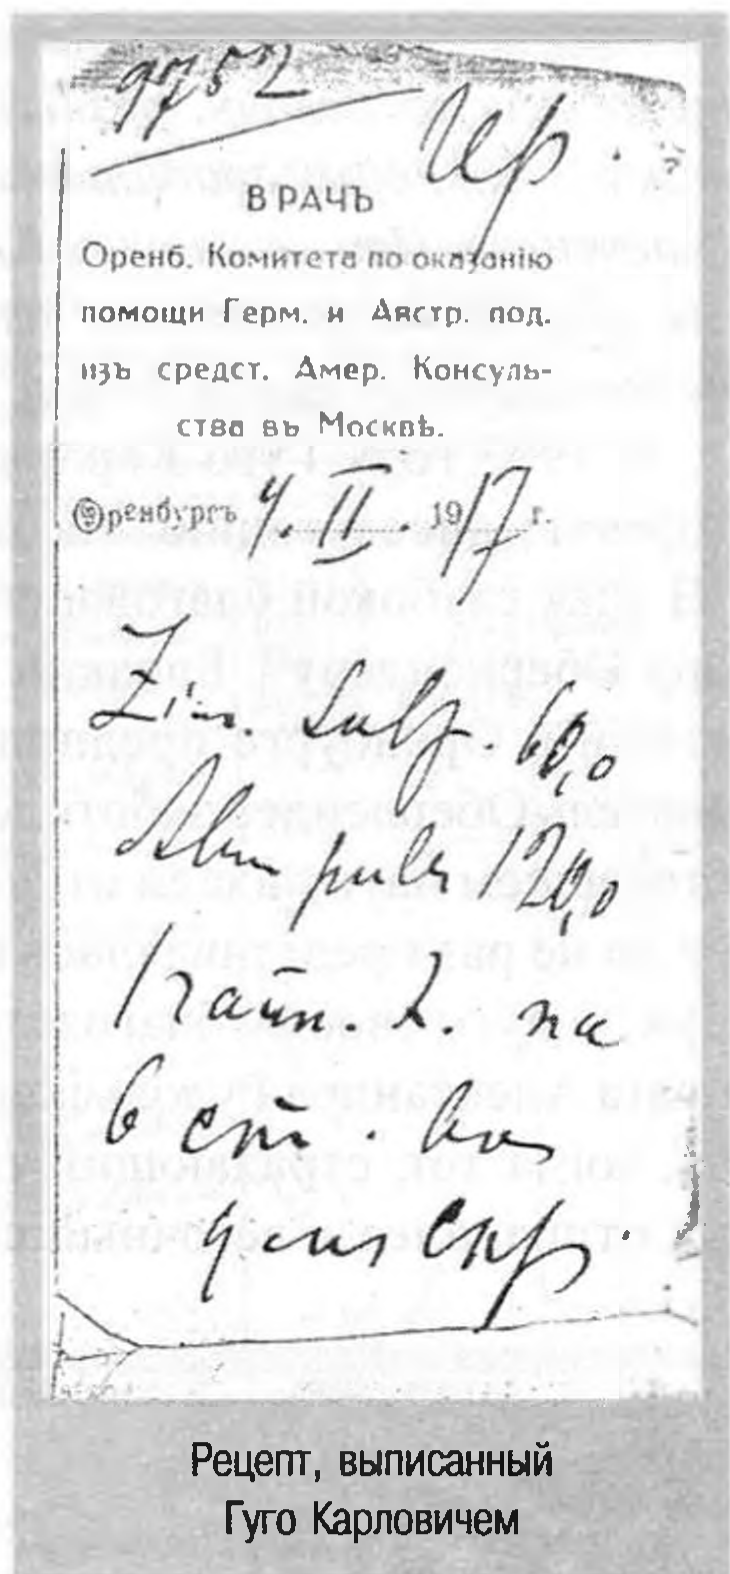 9752
ВРАЧЪ
Оренб. Комитета по оказанію
помощи Герм. и Австр. под.
изъ средст. Амер. Консуль-
ства въ Москвѣ.
Оренбургъ 4.II. 1917 г.
Zinc. Sulf. 60,0
Alum pulv 120,0
1 чайн. л. на
6 ст.
для
Рецепт, выписанный
Гуго Карловичем